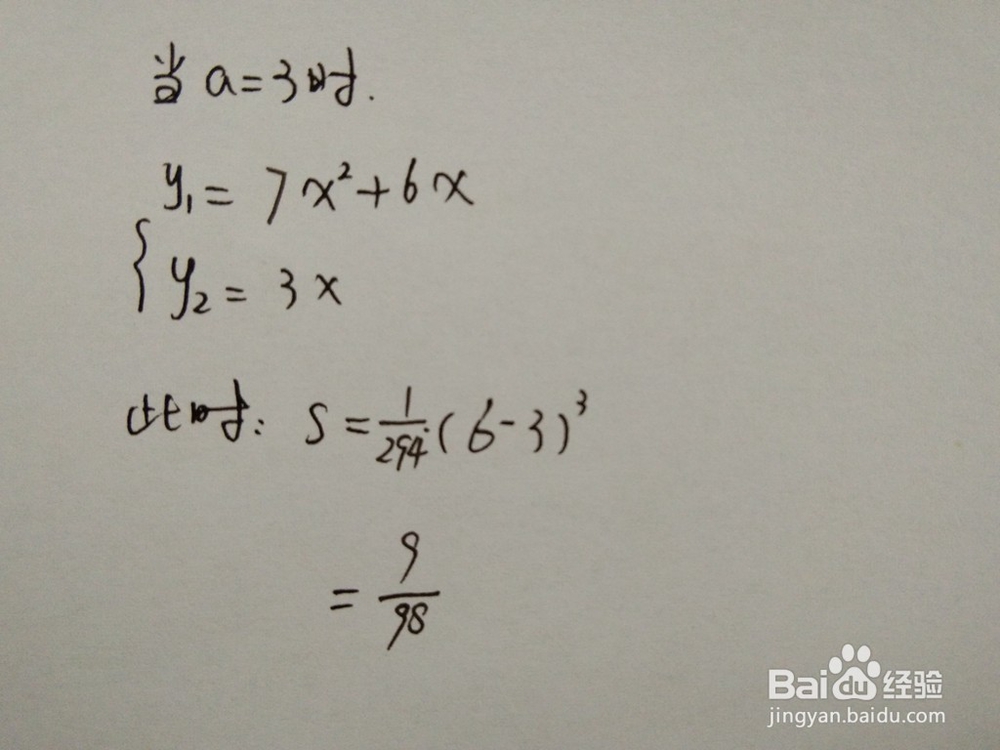 当 a=3时.
y₁= 7x²+6x
{y₂= 3x
此时: S=1/294(6-3)³
=9/98
Baidu经验
jingyan.baidu.com